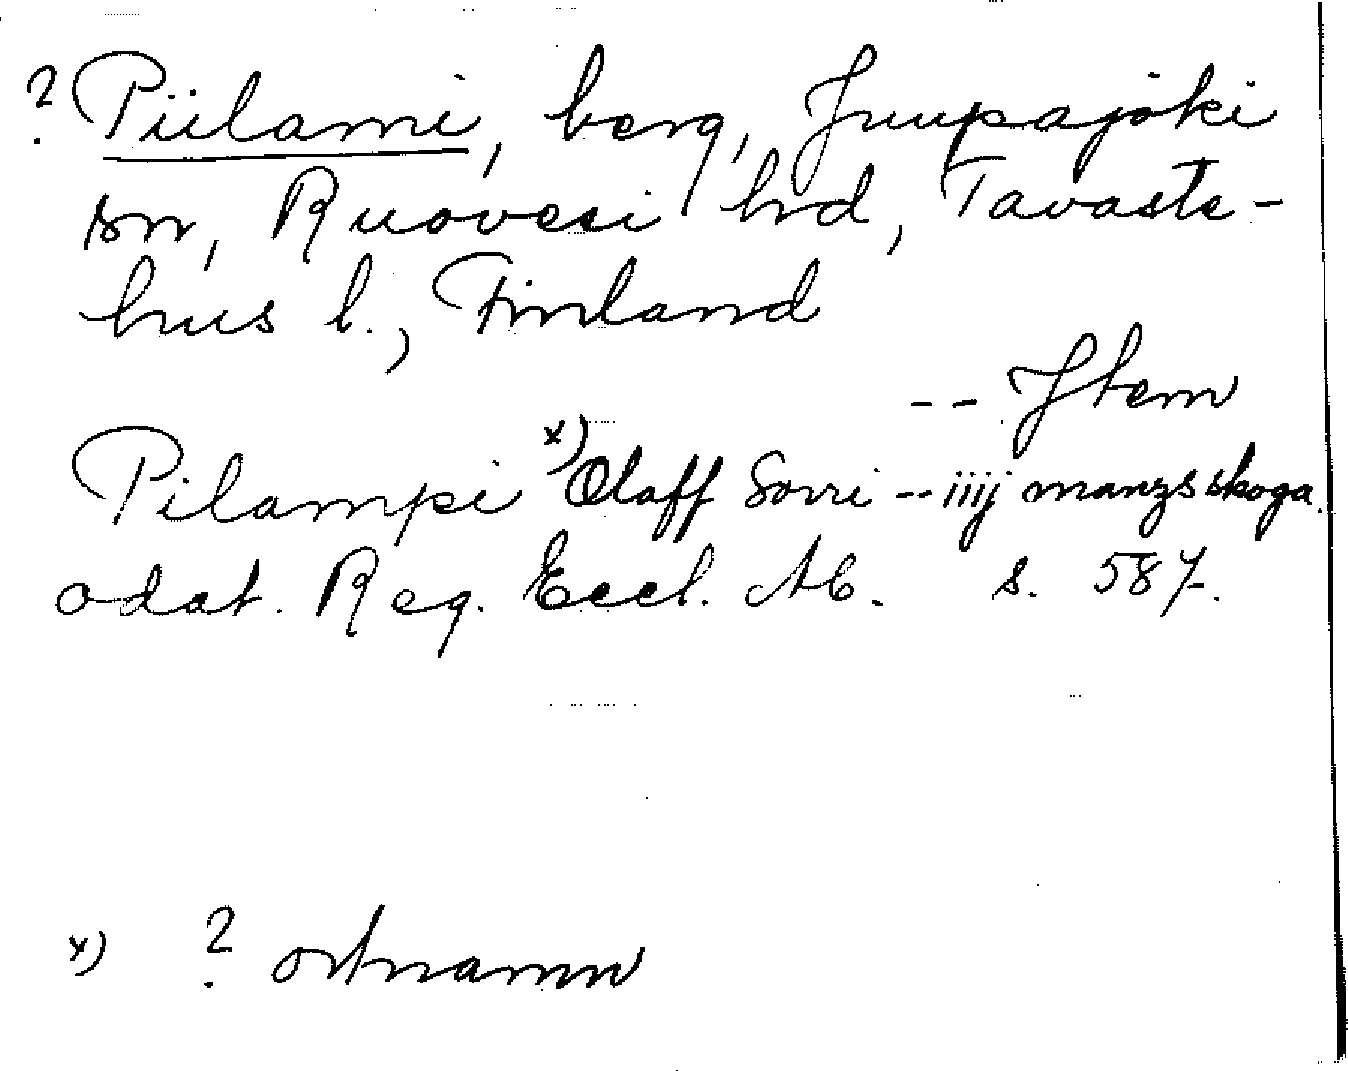 ? Piilami, berg, Juupajoki
sn, Ruovesi hrd, Tavaste-
hus l., Finland
-- Item
Pilampi x) Olaff Sorri -- iiij manzs skoga.
odat. Reg. Eccl. Ab. s. 587.
x) ? ortnamn